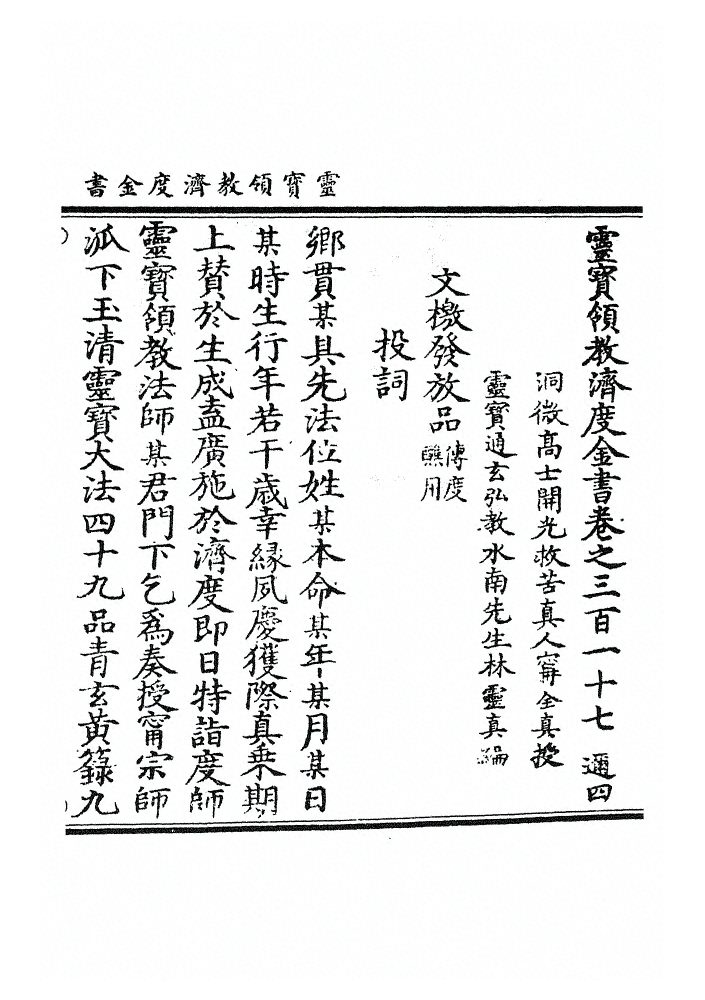 靈寶領教濟度金書
靈寶領教濟度金書卷之三百一十七 邇四
洞微高士開光救苦真人甯全真授
靈寶通玄弘教水南先生林靈真編
文檄發放品傳度醮用
投詞
鄉貫某具先法位姓某本命某年某月某日
某時生行年若干歲幸緣夙慶獲際真乗期
上賛於生成盍廣施於濟度即日特詣度師
靈寶領教法師某君門下乞爲奏授甯宗師
派下玉清靈寶大法四十九品青玄黃籙九